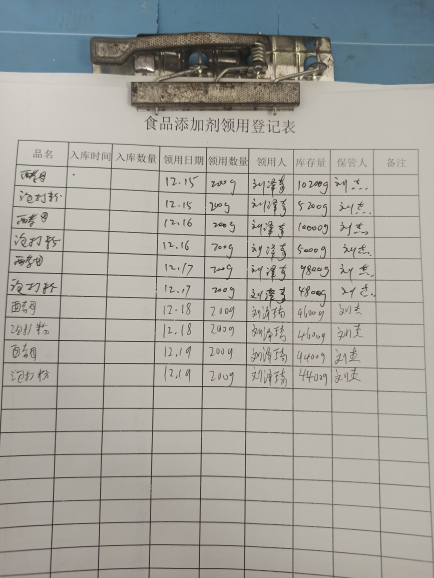 食品添加剂领用登记表
品名 入库时间 入库数量 领用日期 领用数量 领用人 库存量 保管人 备注
酵母 12.15 200g 刘泽奇 10200g 刘杰
泡打粉 12.15 200g 刘泽奇 5200g 刘杰
酵母 12.16 200g 刘泽奇 10000g 刘杰
泡打粉 12.16 200g 刘泽奇 5000g 刘杰
酵母 12.17 200g 刘泽奇 9800g 刘杰
泡打粉 12.17 200g 刘泽奇 4800g 刘杰
酵母 12.18 200g 刘泽琦 9600g 刘杰
泡打粉 12.18 200g 刘泽琦 4600g 刘杰
酵母 12.19 200g 刘泽琦 9400g 刘杰
泡打粉 12.19 200g 刘泽琦 4400g 刘杰